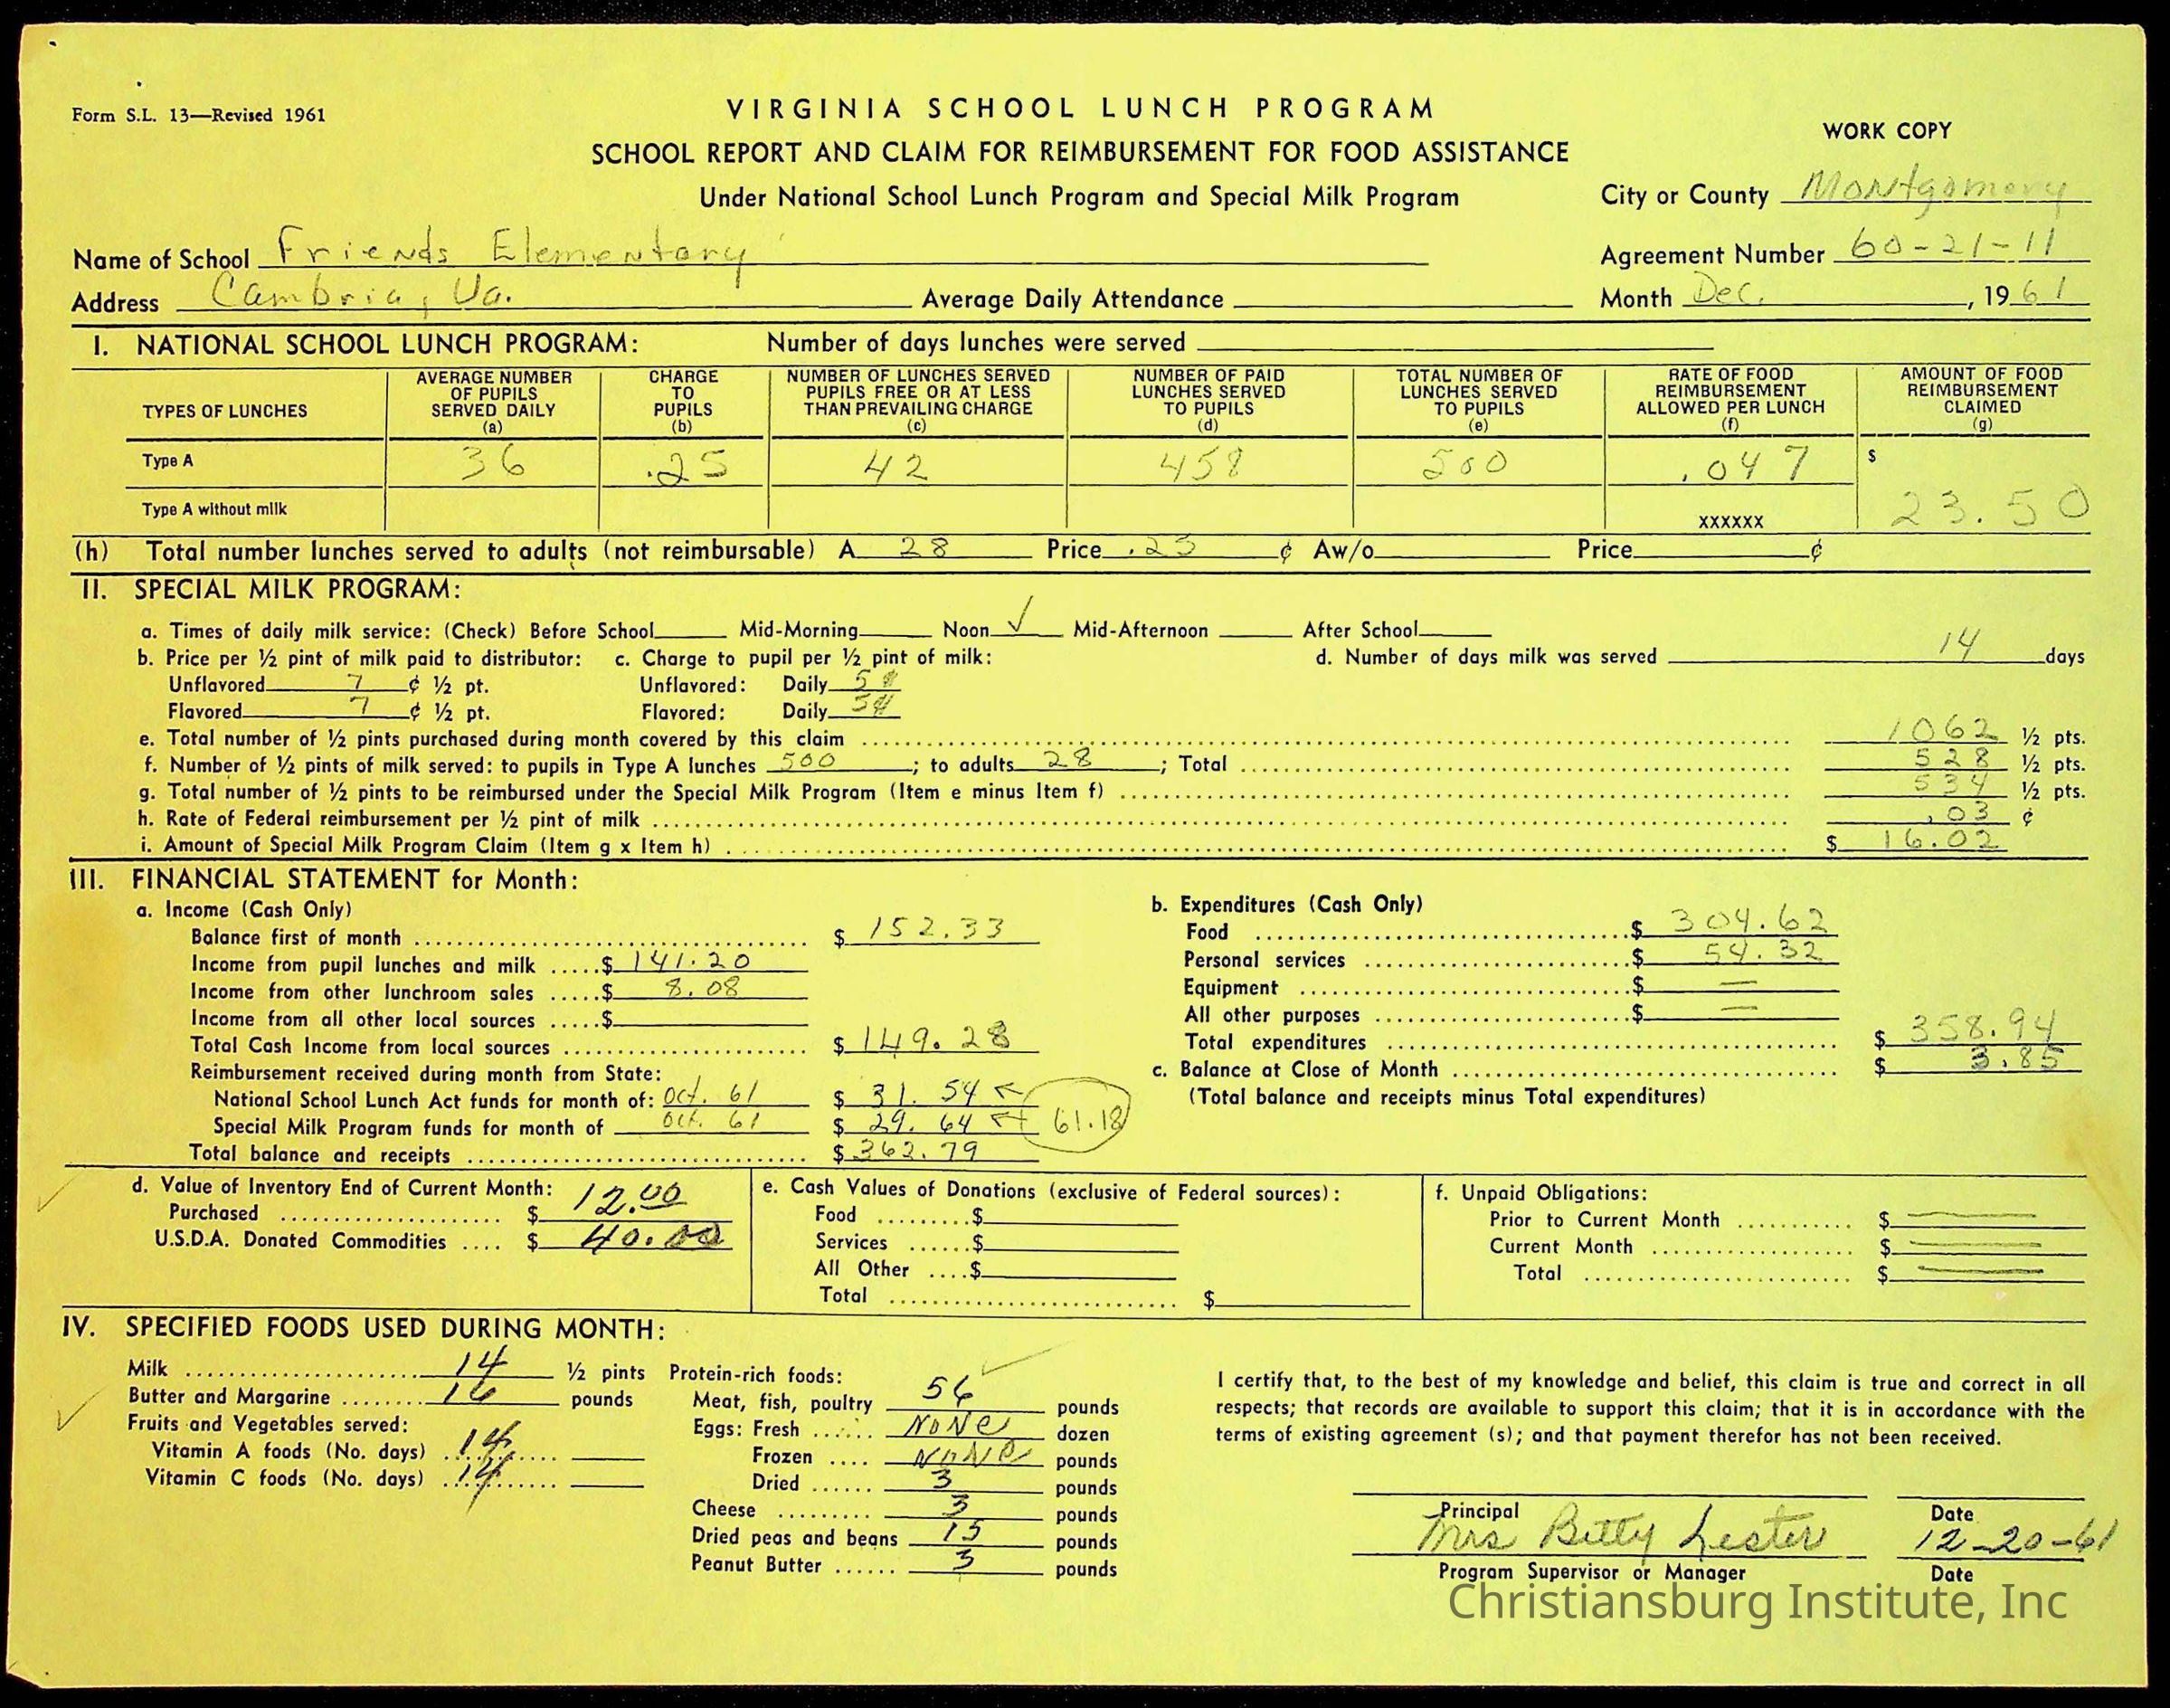 Form S.L. 13—Revised 1961
VIRGINIA SCHOOL LUNCH PROGRAM
WORK COPY
SCHOOL REPORT AND CLAIM FOR REIMBURSEMENT FOR FOOD ASSISTANCE
Under National School Lunch Program and Special Milk Program
City or County Montgomery
Name of School Friends Elementary
Agreement Number 60-21-11
Address Cambria, Va. Average Daily Attendance
Month Dec. , 19 61
I. NATIONAL SCHOOL LUNCH PROGRAM: Number of days lunches were served
TYPES OF LUNCHES
AVERAGE NUMBER OF PUPILS SERVED DAILY (a)
CHARGE TO PUPILS (b)
NUMBER OF LUNCHES SERVED PUPILS FREE OR AT LESS THAN PREVAILING CHARGE (c)
NUMBER OF PAID LUNCHES SERVED TO PUPILS (d)
TOTAL NUMBER OF LUNCHES SERVED TO PUPILS (e)
RATE OF FOOD REIMBURSEMENT ALLOWED PER LUNCH (f)
AMOUNT OF FOOD REIMBURSEMENT CLAIMED (g)
Type A 36 .25 42 458 500 .047 $
Type A without milk XXXXXX 23.50
(h) Total number lunches served to adults (not reimbursable) A 28 Price .25 ¢ Aw/o Price ¢
II. SPECIAL MILK PROGRAM:
a. Times of daily milk service: (Check) Before School Mid-Morning Noon ✓ Mid-Afternoon After School
b. Price per ½ pint of milk paid to distributor: c. Charge to pupil per ½ pint of milk: d. Number of days milk was served 14 days
Unflavored 7 ¢ ½ pt. Unflavored: Daily 5¢
Flavored 7 ¢ ½ pt. Flavored: Daily 5¢
e. Total number of ½ pints purchased during month covered by this claim 1062 ½ pts.
f. Number of ½ pints of milk served: to pupils in Type A lunches 500 ; to adults 28 ; Total 528 ½ pts.
g. Total number of ½ pints to be reimbursed under the Special Milk Program (Item e minus Item f) 534 ½ pts.
h. Rate of Federal reimbursement per ½ pint of milk .03 ¢
i. Amount of Special Milk Program Claim (Item g x Item h) $ 16.02
III. FINANCIAL STATEMENT for Month:
a. Income (Cash Only)
Balance first of month $ 152.33
Income from pupil lunches and milk $ 141.20
Income from other lunchroom sales $ 8.08
Income from all other local sources $
Total Cash Income from local sources $ 149.28
Reimbursement received during month from State:
National School Lunch Act funds for month of: Oct. 61 $ 31.54
Special Milk Program funds for month of Oct. 61 $ 29.64 61.18
Total balance and receipts $ 362.79
b. Expenditures (Cash Only)
Food $ 304.62
Personal services $ 54.32
Equipment $ —
All other purposes $ —
Total expenditures $ 358.94
c. Balance at Close of Month $ 3.85
(Total balance and receipts minus Total expenditures)
d. Value of Inventory End of Current Month:
Purchased $ 12.00
U.S.D.A. Donated Commodities $ 40.00
e. Cash Values of Donations (exclusive of Federal sources):
Food $
Services $
All Other $
Total $
f. Unpaid Obligations:
Prior to Current Month $ —
Current Month $ —
Total $ —
IV. SPECIFIED FOODS USED DURING MONTH:
Milk 14 ½ pints
Butter and Margarine 16 pounds
Fruits and Vegetables served:
Vitamin A foods (No. days) 14
Vitamin C foods (No. days) 14
Protein-rich foods:
Meat, fish, poultry 56 pounds
Eggs: Fresh None dozen
Frozen None pounds
Dried 3 pounds
Cheese 3 pounds
Dried peas and beans 15 pounds
Peanut Butter 3 pounds
I certify that, to the best of my knowledge and belief, this claim is true and correct in all
respects; that records are available to support this claim; that it is in accordance with the
terms of existing agreement (s); and that payment therefor has not been received.
Principal Date
Mrs Betty Lester 12-20-61
Program Supervisor or Manager Date
Christiansburg Institute, Inc